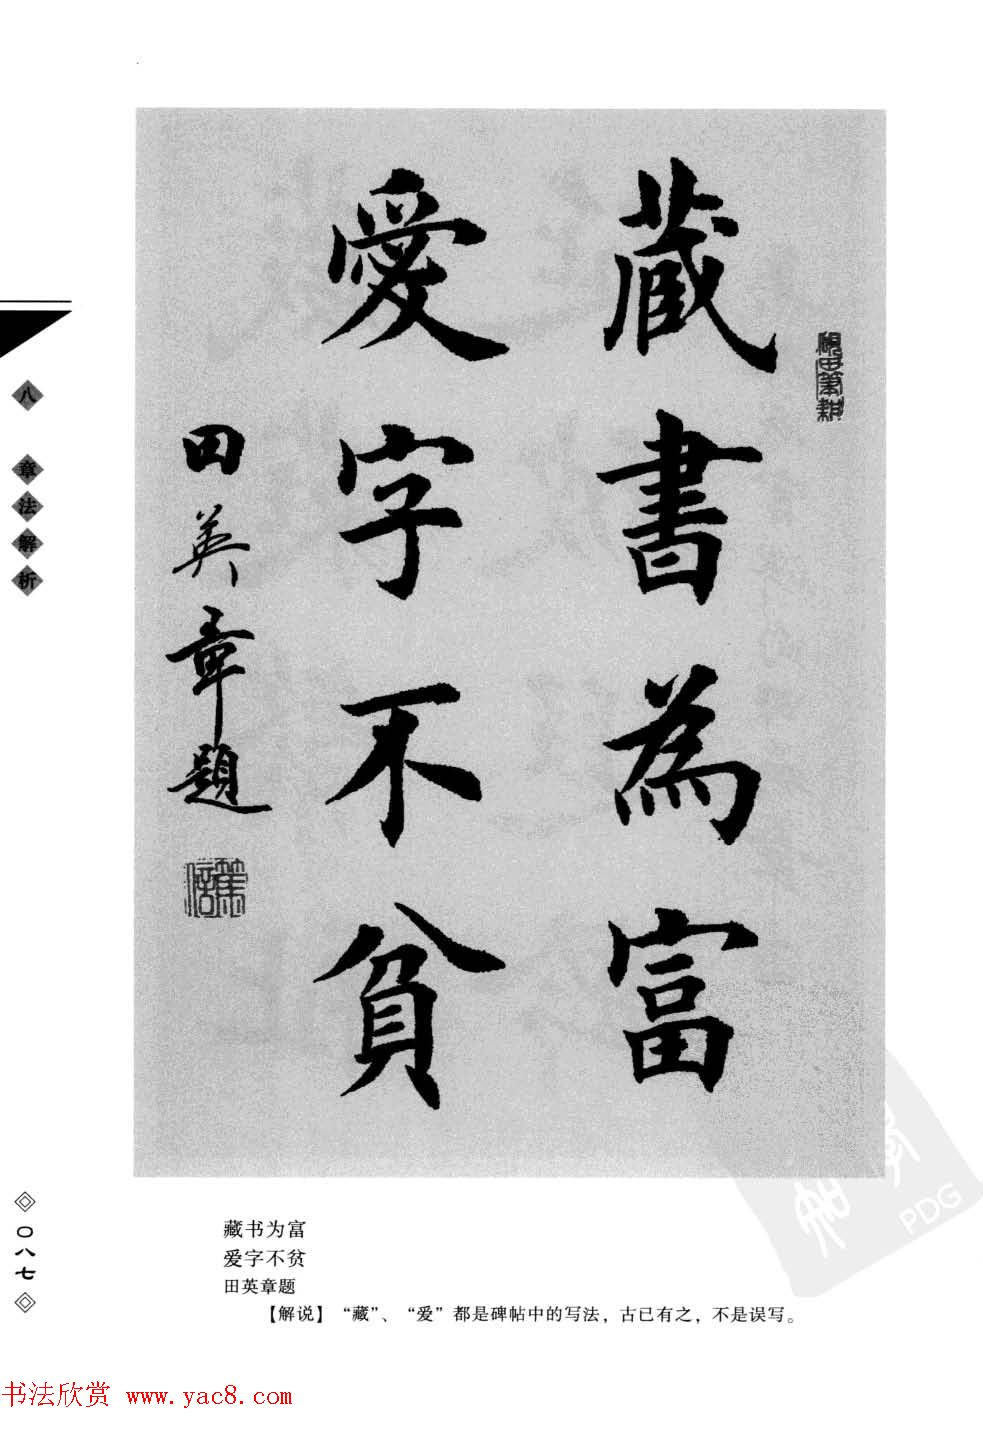 藏書為富
愛字不貧
田英章題
硯田筆耕
八 章法解析
〇八七
藏书为富
爱字不贫
田英章题
【解说】“藏”、“爱”都是碑帖中的写法，古已有之，不是误写。
PDG
书法欣赏 www.yac8.com